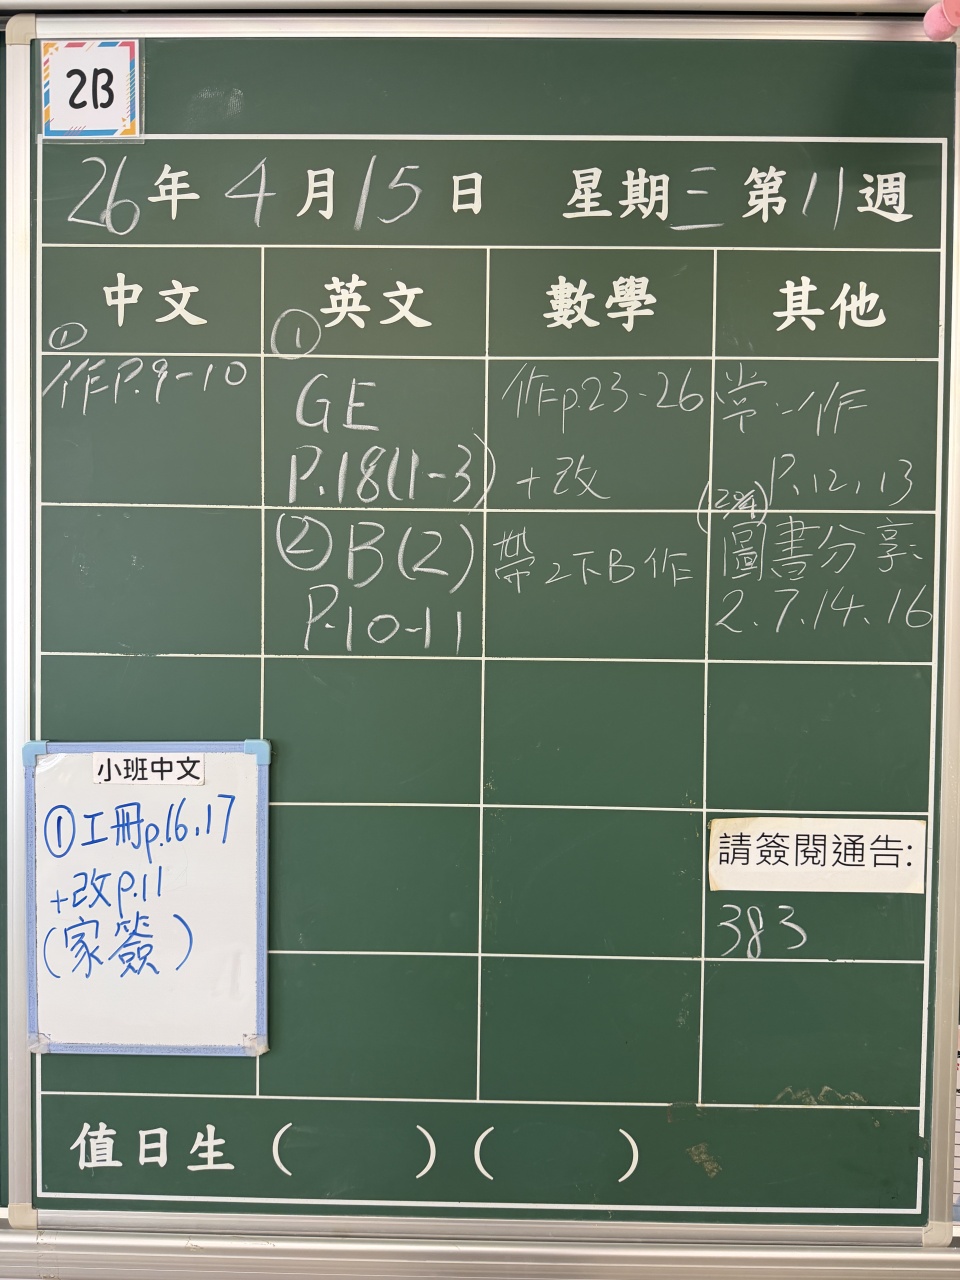 2B
26年4月15日 星期三 第11週
中文
①
作P.9-10
英文
①
GE
P.18(1-3)
② B(2)
P.10-11
數學
作p.23-26
+改
帶2下B作
其他
常:作
P.12,13
圖書分享:
2.7.14.16
請簽閱通告:
383
小班中文
①工冊p.16,17
+改p.11
(家簽)
值日生 ( ) ( )